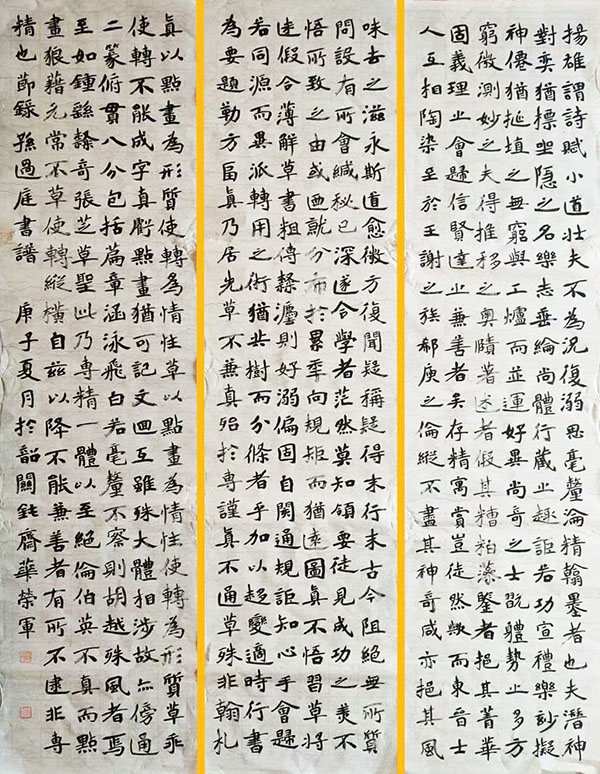 揚雄謂詩賦小道壯夫不為況復溺思毫釐淪精翰墨者也夫潛神
對奕猶標坐隱之名樂志垂綸尚體行藏之趣詎若功宣禮樂妙擬
神僊猶埏埴之無窮與工爐而並運好異尚奇之士翫體勢之多方
窮微測妙之夫得推移之奧賾著述者假其糟粕藻鑒者挹其菁華
固義理之會歸信賢達之兼善者矣存精寓賞豈徒然歟而東晉士
人互相陶染至於王謝之族郗庾之倫縱不盡其神奇咸亦挹其風
味去之滋永斯道愈微方復聞疑稱疑得末行末古今阻絕無所質
問設有所會緘秘已深遂令學者茫然莫知領要徒見成功之美不
悟所致之由或廼就分布於累年向規矩而猶遠圖真不悟習草將
迷假令薄解草書粗傳隸灋則好溺偏固自閡通規詎知心手會歸
若同源而異派轉用之術猶共樹而分條者乎加以趨變適時行書
為要題勒方畐真乃居先草不兼真殆於專謹真不通草殊非翰札
真以點畫為形質使轉為情性草以點畫為情性使轉為形質草乖
使轉不能成字真虧點畫猶可記文迴互雖殊大體相涉故亦傍通
二篆俯貫八分包括篇章涵泳飛白若毫釐不察則胡越殊風者焉
至如鍾繇隸奇張芝草聖此乃專精一體以至絕倫伯英不真而點
畫狼藉元常不草使轉縱橫自茲以降不能兼善者有所不逮非專
精也節錄孫過庭書譜 庚子夏月於韶關鈍齋華榮軍